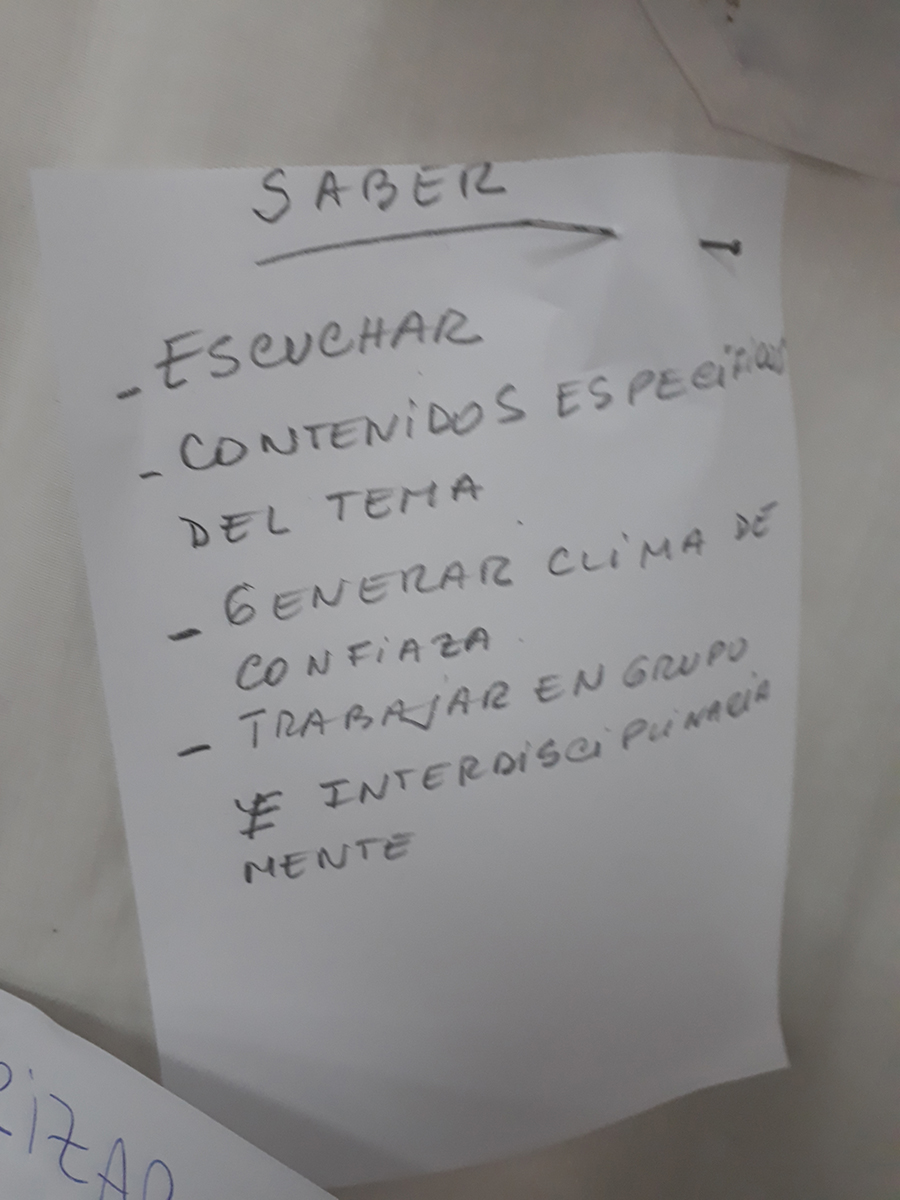 SABER
- ESCUCHAR
- CONTENIDOS ESPECÍFICOS
DEL TEMA
- GENERAR CLIMA DE
CONFIAZA
- TRABAJAR EN GRUPO
E INTERDISCIPLINARIA
MENTE
RIZAR